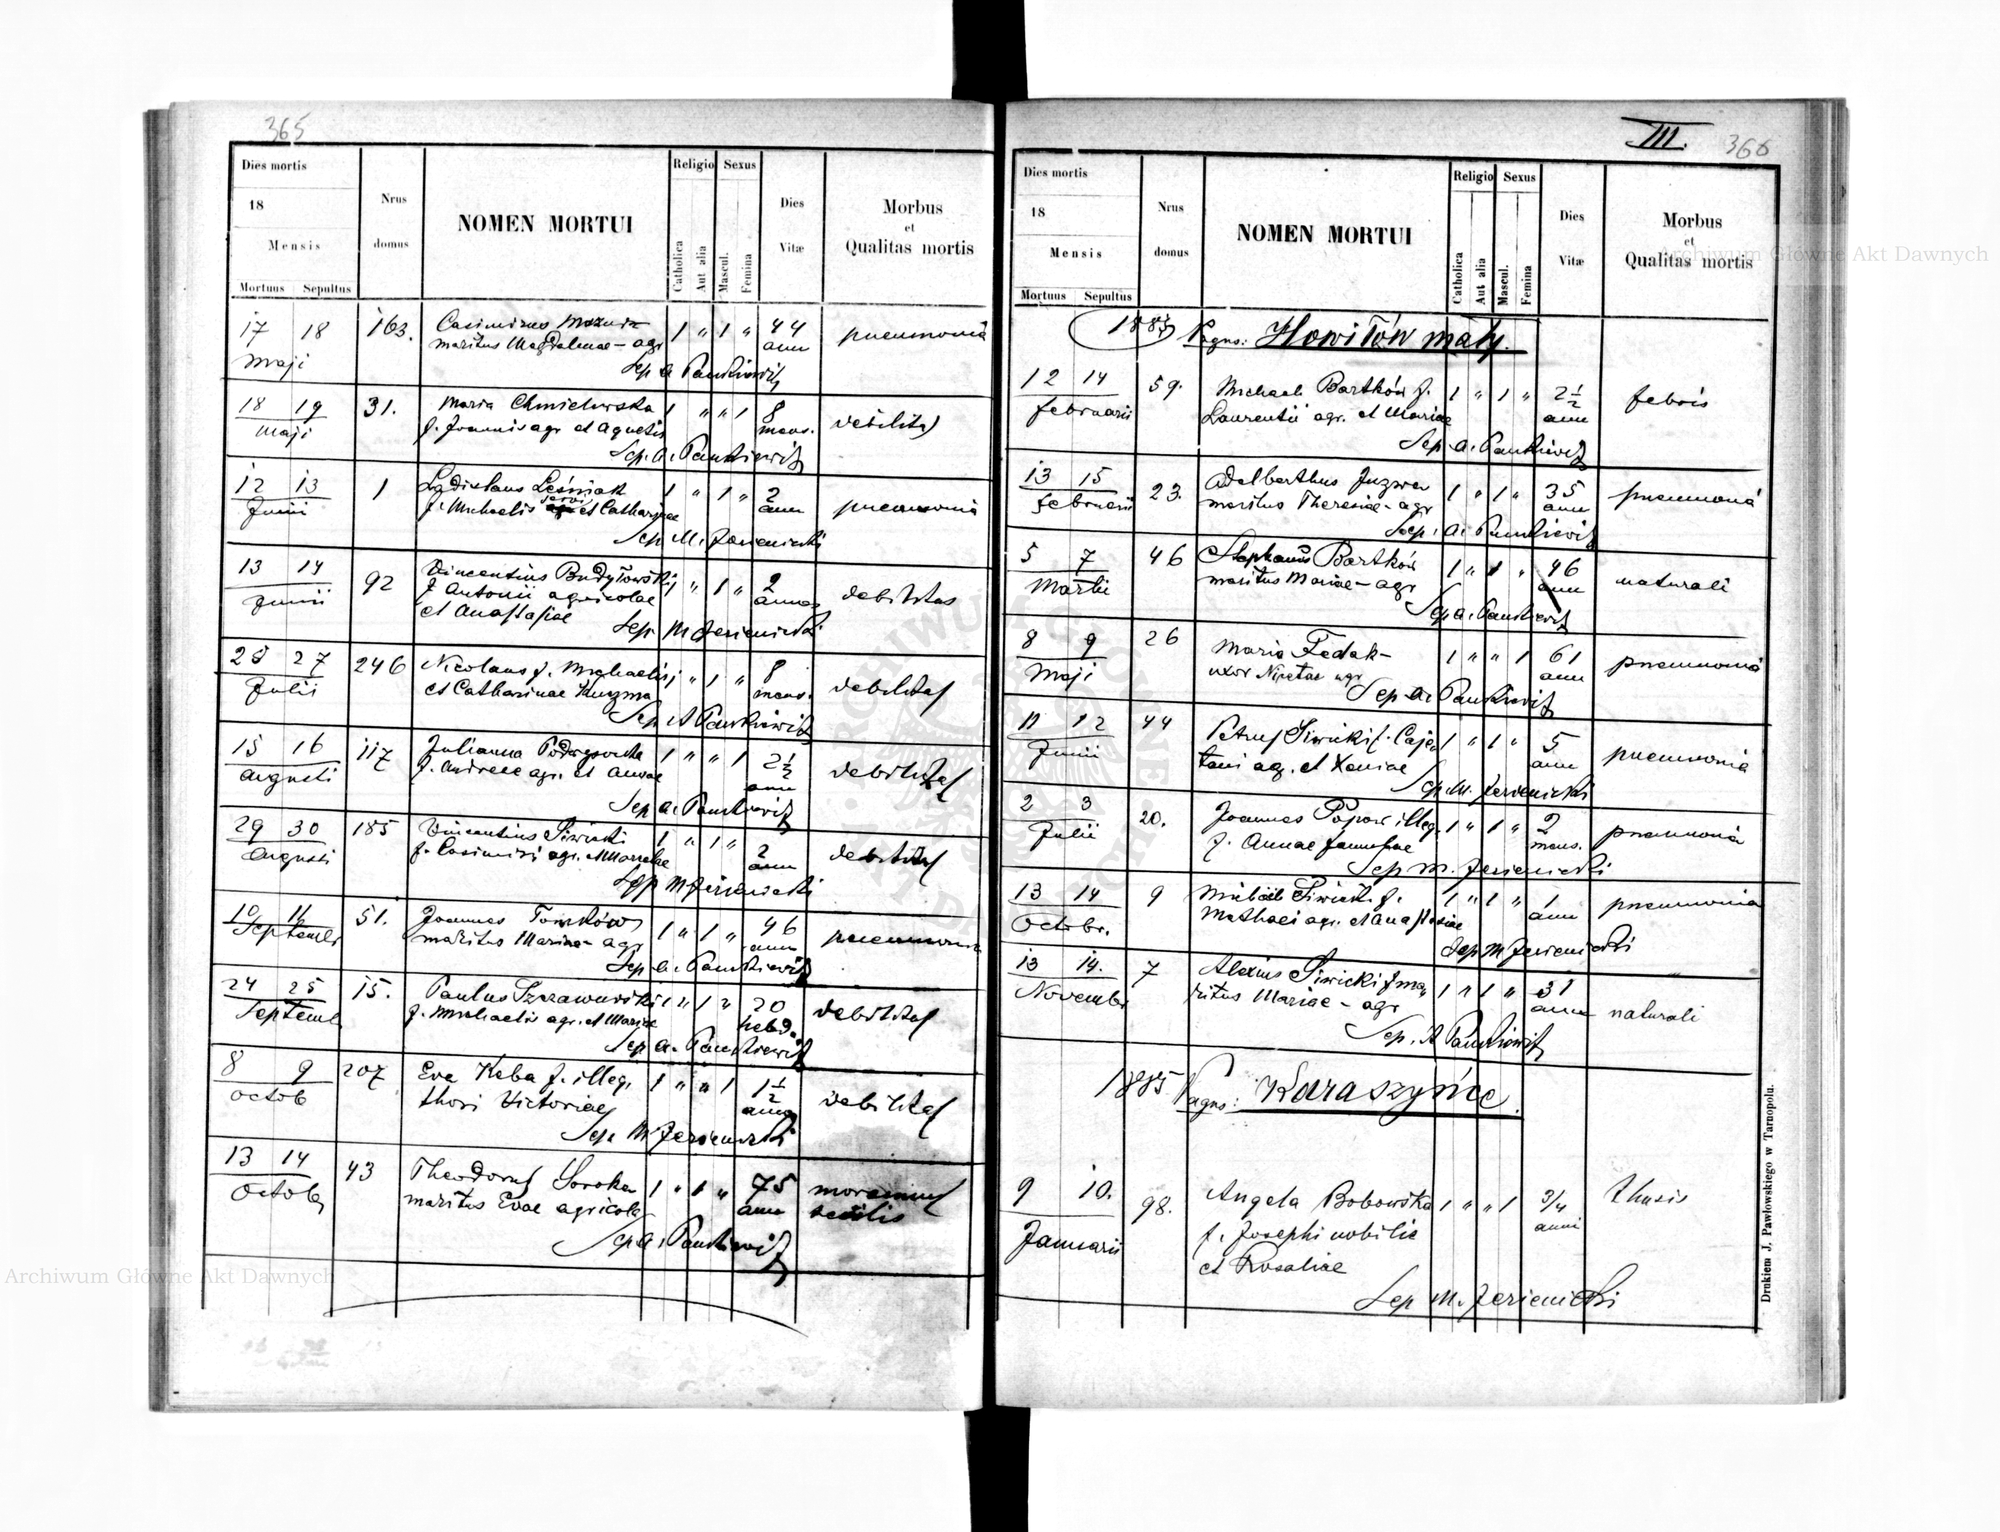 365
Dies mortis
18
Mensis
Mortuus Sepultus
Nrus domus
NOMEN MORTUI
Religio
Catholica
Aut alia
Sexus
Mascul.
Femina
Dies Vitæ
Morbus
et
Qualitas mortis
17 18 163. Casimirus 1 " 1 " 44 pneumonia
maji maritus Magdalenae - agr ann
Sep a Pankiewicz
18 19 31. Maria Chmielewska 1 " " 1 8 debilitas
maji f. Joannis agr et Agnetis mens.
Sep. a. Pankiewicz
12 13 1 Ladislaus Leśniak 1 " 1 " 2 pneumonia
Junii f. Michaelis servi et Catharinae ann
Sep M. Jezienicki
13 14 92 Vincentius Budyłowski 1 " 1 " 2 debilitas
Junii f Antonii agricolae annos
et Anastasiae Sep. M Jezienicki
25 27 246 Nicolaus f. Michaelis 1 " 1 " 8 debilitas
Julii et Catharinae Kuzma mens.
Sep. A Pankiewicz
15 16 117 Julianna 1 " " 1 2½ debilitas
Augusti f. Andreae agr. et Annae ann
Sep a. Pankiewicz
29 30 185 Vincentius Siwicki 1 " 1 " 2 debilitas
Augusti f. Casimiri agr. et ann
Sep M Jezienicki
10 11 51. Joannes Tomków 1 " 1 " 46 pneumonia
Septembr maritus Mariae - agr ann
Sep a. Pankiewicz
24 25 15. Paulus Szarawarski 1 " 1 " 20 debilitas
Septemb f. Michaelis agr. et Mariae hebd.
Sep a. Pankiewicz
8 9 207 Eva Keba f. illeg. 1 " " 1 1½ debilitas
Octob thori Victoriae anno
Sep. M Jezienicki
13 14 43 Theodorus Soroka 1 " 1 " 75
Octob maritus Evae agricola ann senilis
Sep a. Pankiewicz
III. 366
Dies mortis
18
Mensis
Mortuus Sepultus
Nrus domus
NOMEN MORTUI
Religio
Catholica
Aut alia
Sexus
Mascul.
Femina
Dies Vitæ
Morbus
et
Qualitas mortis
1885 Pagus: Howiłów mały.
12 14 59. Michael Bartków f. 1 " 1 " 2½ febris
februarii Laurentii agr. et Mariae ann
Sep a. Pankiewicz
13 15 23. Adalberthus Juzwa 1 " 1 " 35 pneumonia
februarii maritus Theresiae - agr ann
Sep. a. Pankiewicz
5 7 46 Stephanus Bartków 1 " 1 " 46 naturali
Martii maritus Mariae - agr ann
Sep a. Pankiewicz
8 9 26 Maria Fedak - 1 " " 1 61 pneumonia
Maji uxor Nicetas agr ann
Sep a. Pankiewicz
11 12 44 Petrus Siwicki f. Caje 1 " 1 " 5 pneumonia
Junii tani ag. et Xeniae ann
Sep. M. Jezienicki
2 3 20. Joannes Popow illeg. 1 " 1 " 2 pneumonia
Julii f. Annae mens.
Sep M. Jezienicki
13 14 9 Michael Siwicki f. 1 " 1 " 1 pneumonia
Octobr. Mathaei agr. et Anastasiae ann
Sep M Jezienicki
13 14. 7 Alexius Siwicki ma 1 " 1 " 31
Novembr ritus Mariae - agr ann naturali
Sep. A Pankiewicz
1885 Pagus: Karaszyńce.
9 10. 98. Angela Bobowska 1 " " 1 3/4 thusis
Januarii f. Josephi nobilis anni
et Rosaliae
Sep M. Jezienicki
Drukiem J. Pawłowskiego w Tarnopolu.
Archiwum Główne Akt Dawnych
Archiwum Główne Akt Dawnych
ARCHIWUM GŁÓWNE AKT DAWNYCH